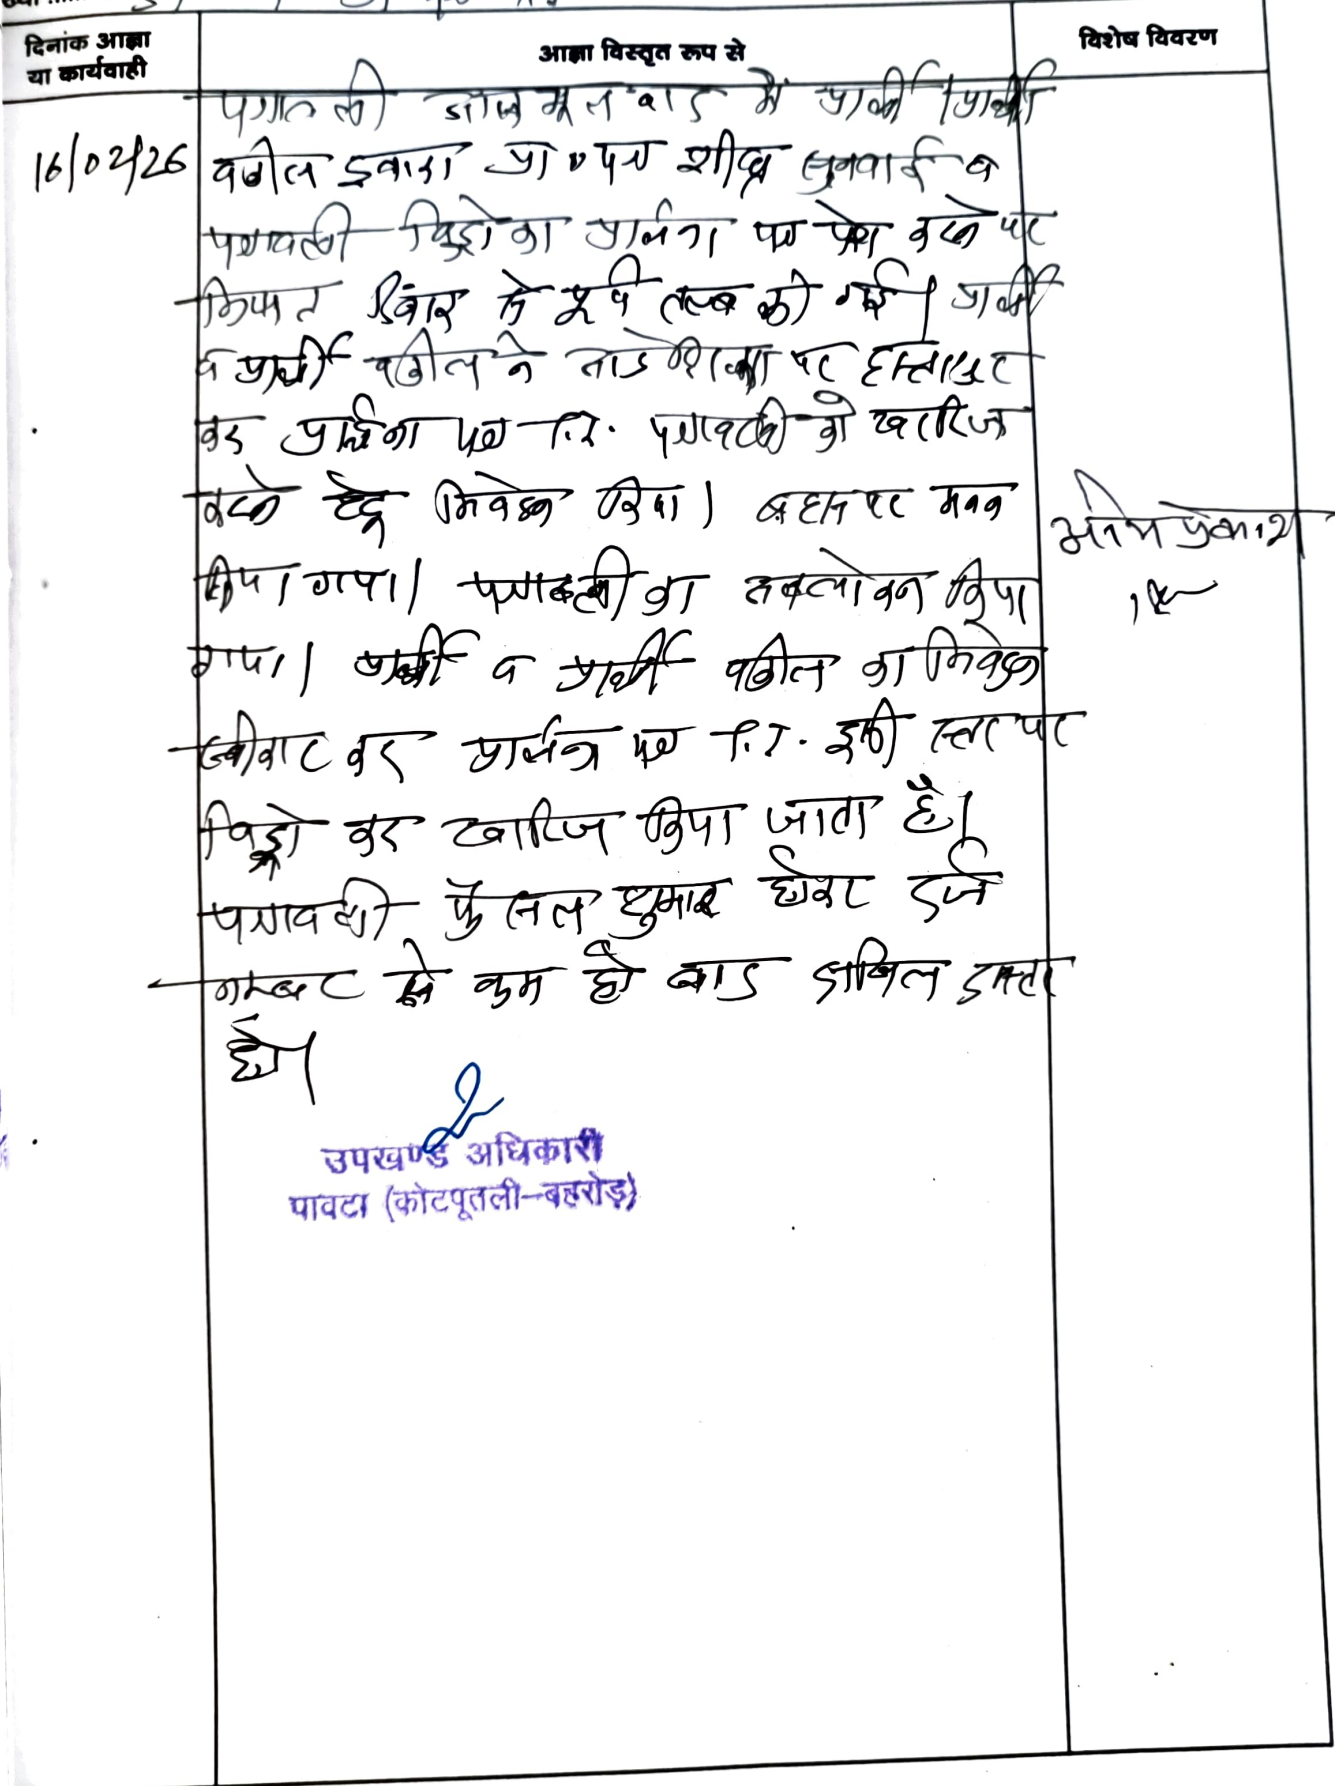 दिनांक आज्ञा
या कार्यवाही
आज्ञा विस्तृत रूप से
विशेष विवरण
पत्रावली आज मूल वाद में प्रार्थी/प्रार्थी
16/02/26
वकील द्वारा प्रा० पत्र शीघ्र सुनवाई व
पत्रावली विड्रो का प्रार्थना पत्र पेश करने पर
नियत दिनांक से पूर्व तलब की गई। प्रार्थी
व प्रार्थी वकील ने आदेशिका पर हस्ताक्षर
कर प्रार्थना पत्र T.I. पत्रावली को खारिज
करने हेतु निवेदन किया। बहस पर मनन
किया गया। पत्रावली का अवलोकन किया
गया। प्रार्थी व प्रार्थी वकील का निवेदन
स्वीकार कर प्रार्थना पत्र T.I. इसी स्तर पर
विड्रो कर खारिज किया जाता है।
पत्रावली फैसल शुमार होकर दर्ज
नम्बर से कम हो बाद दाखिल दफ्तर
हो।
उपखण्ड अधिकारी
पावटा (कोटपूतली-बहरोड़)